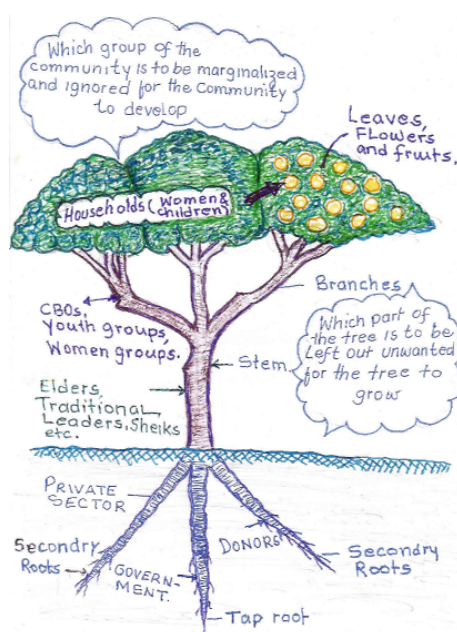 Which group of the
community is to be marginalized
and ignored for the Community
to develop
Leaves,
Flowers
and fruits.
Households (Women &
children)
Branches
CBOs,
Youth groups,
Women groups.
Which part of
the tree is to be
Left out unwanted
for the tree to
grow
Stem
Elders,
Traditional
Leaders, Sheiks
etc.
PRIVATE
SECTOR
Secondry
Roots
GOVERN-
MENT.
DONORS
Secondry
Roots
Tap root